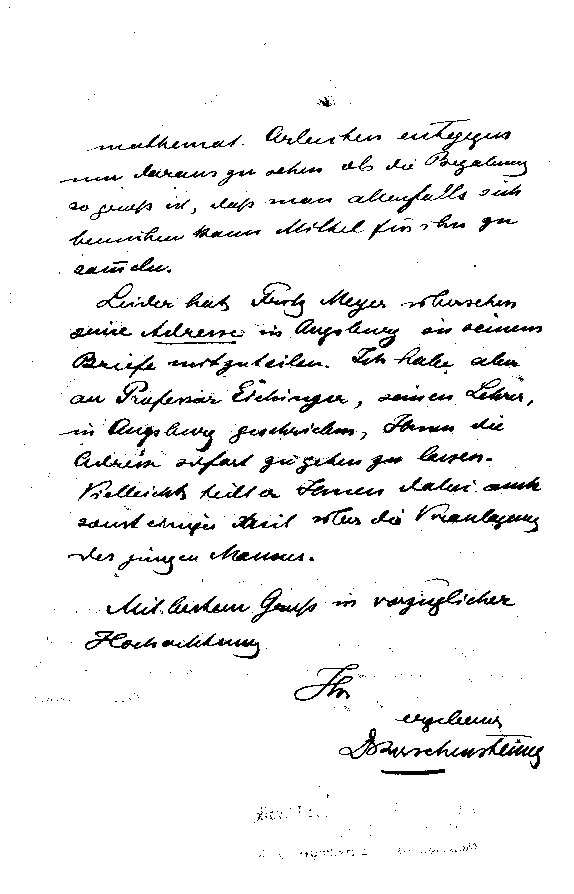 mathemat. Arbeiten entgegen
um daraus zu sehen ob die Begabung
so groß ist, daß man allenfalls sich
bemühen kann Mittel für ihn zu
sam̄eln.
Leider hat Fritz Meyer übersehen
seine Adresse in Augsburg in seinem
Briefe mitzuteilen. Ich habe aber
an Professor Eichinger, seinen Lehrer,
in Augsburg geschrieben, Ihnen die
Adresse sofort zugehen zu lassen.
Vielleicht teilt er Ihnen dabei auch
sonst einiges mit über die Veranlagung
des jungen Mannes.
Mit bestem Gruß in vorzüglicher
Hochachtung
Ihr
ergebener
Kerschensteiner